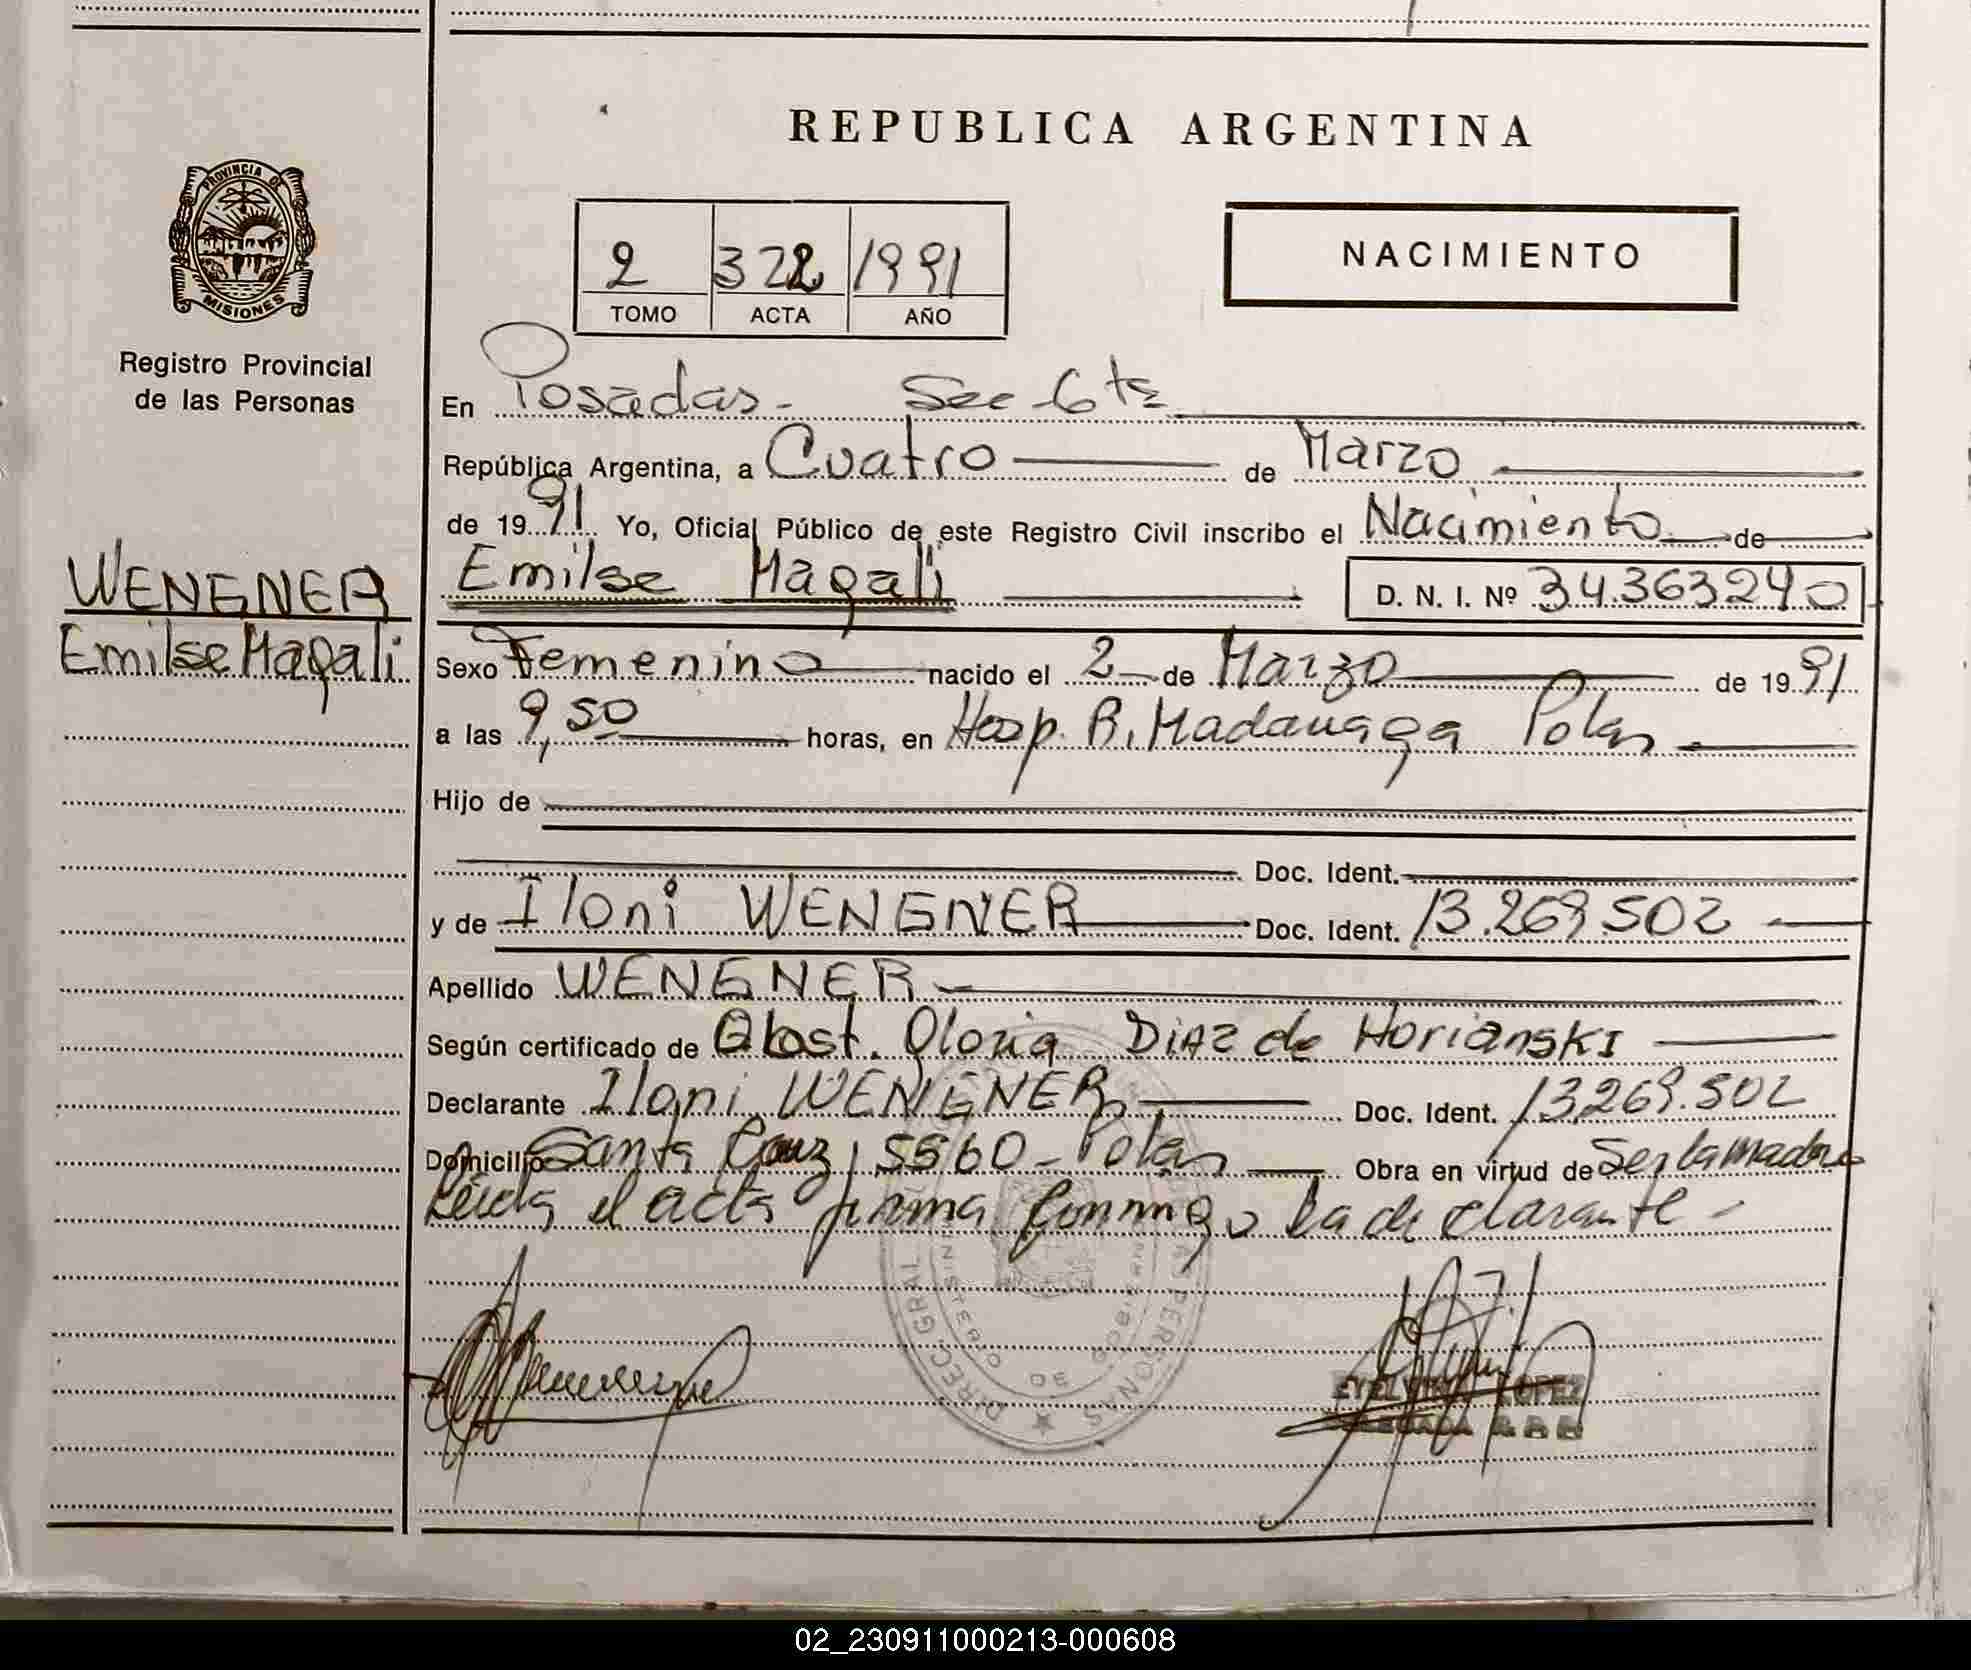 REPUBLICA ARGENTINA
PROVINCIA DE
MISIONES
Registro Provincial
de las Personas
2 322 1991
TOMO ACTA AÑO
NACIMIENTO
En Posadas - Sec 6ta
República Argentina, a Cuatro de Marzo
de 1991 Yo, Oficial Público de este Registro Civil inscribo el Nacimiento de
WENGNER
Emilse Magali
Emilse Magali D. N. I. Nº 34.363240
Sexo Femenino nacido el 2 de Marzo de 1991
a las 9,50 horas, en Hosp. R. Madariaga Pdas
Hijo de
Doc. Ident.
y de Iloni WENGNER Doc. Ident. 13.269.502
Apellido WENGNER
Según certificado de Obst. Gloria Diaz de Horianski
Declarante Iloni WENGNER Doc. Ident. 13269.502
Domicilio Santa Cruz 5560 - Pdas Obra en virtud de Ser la madre
Leida el acta firma conmigo la declarante -
DIREC. GRAL. PERSONAS
LOPEZ
02_230911000213-000608